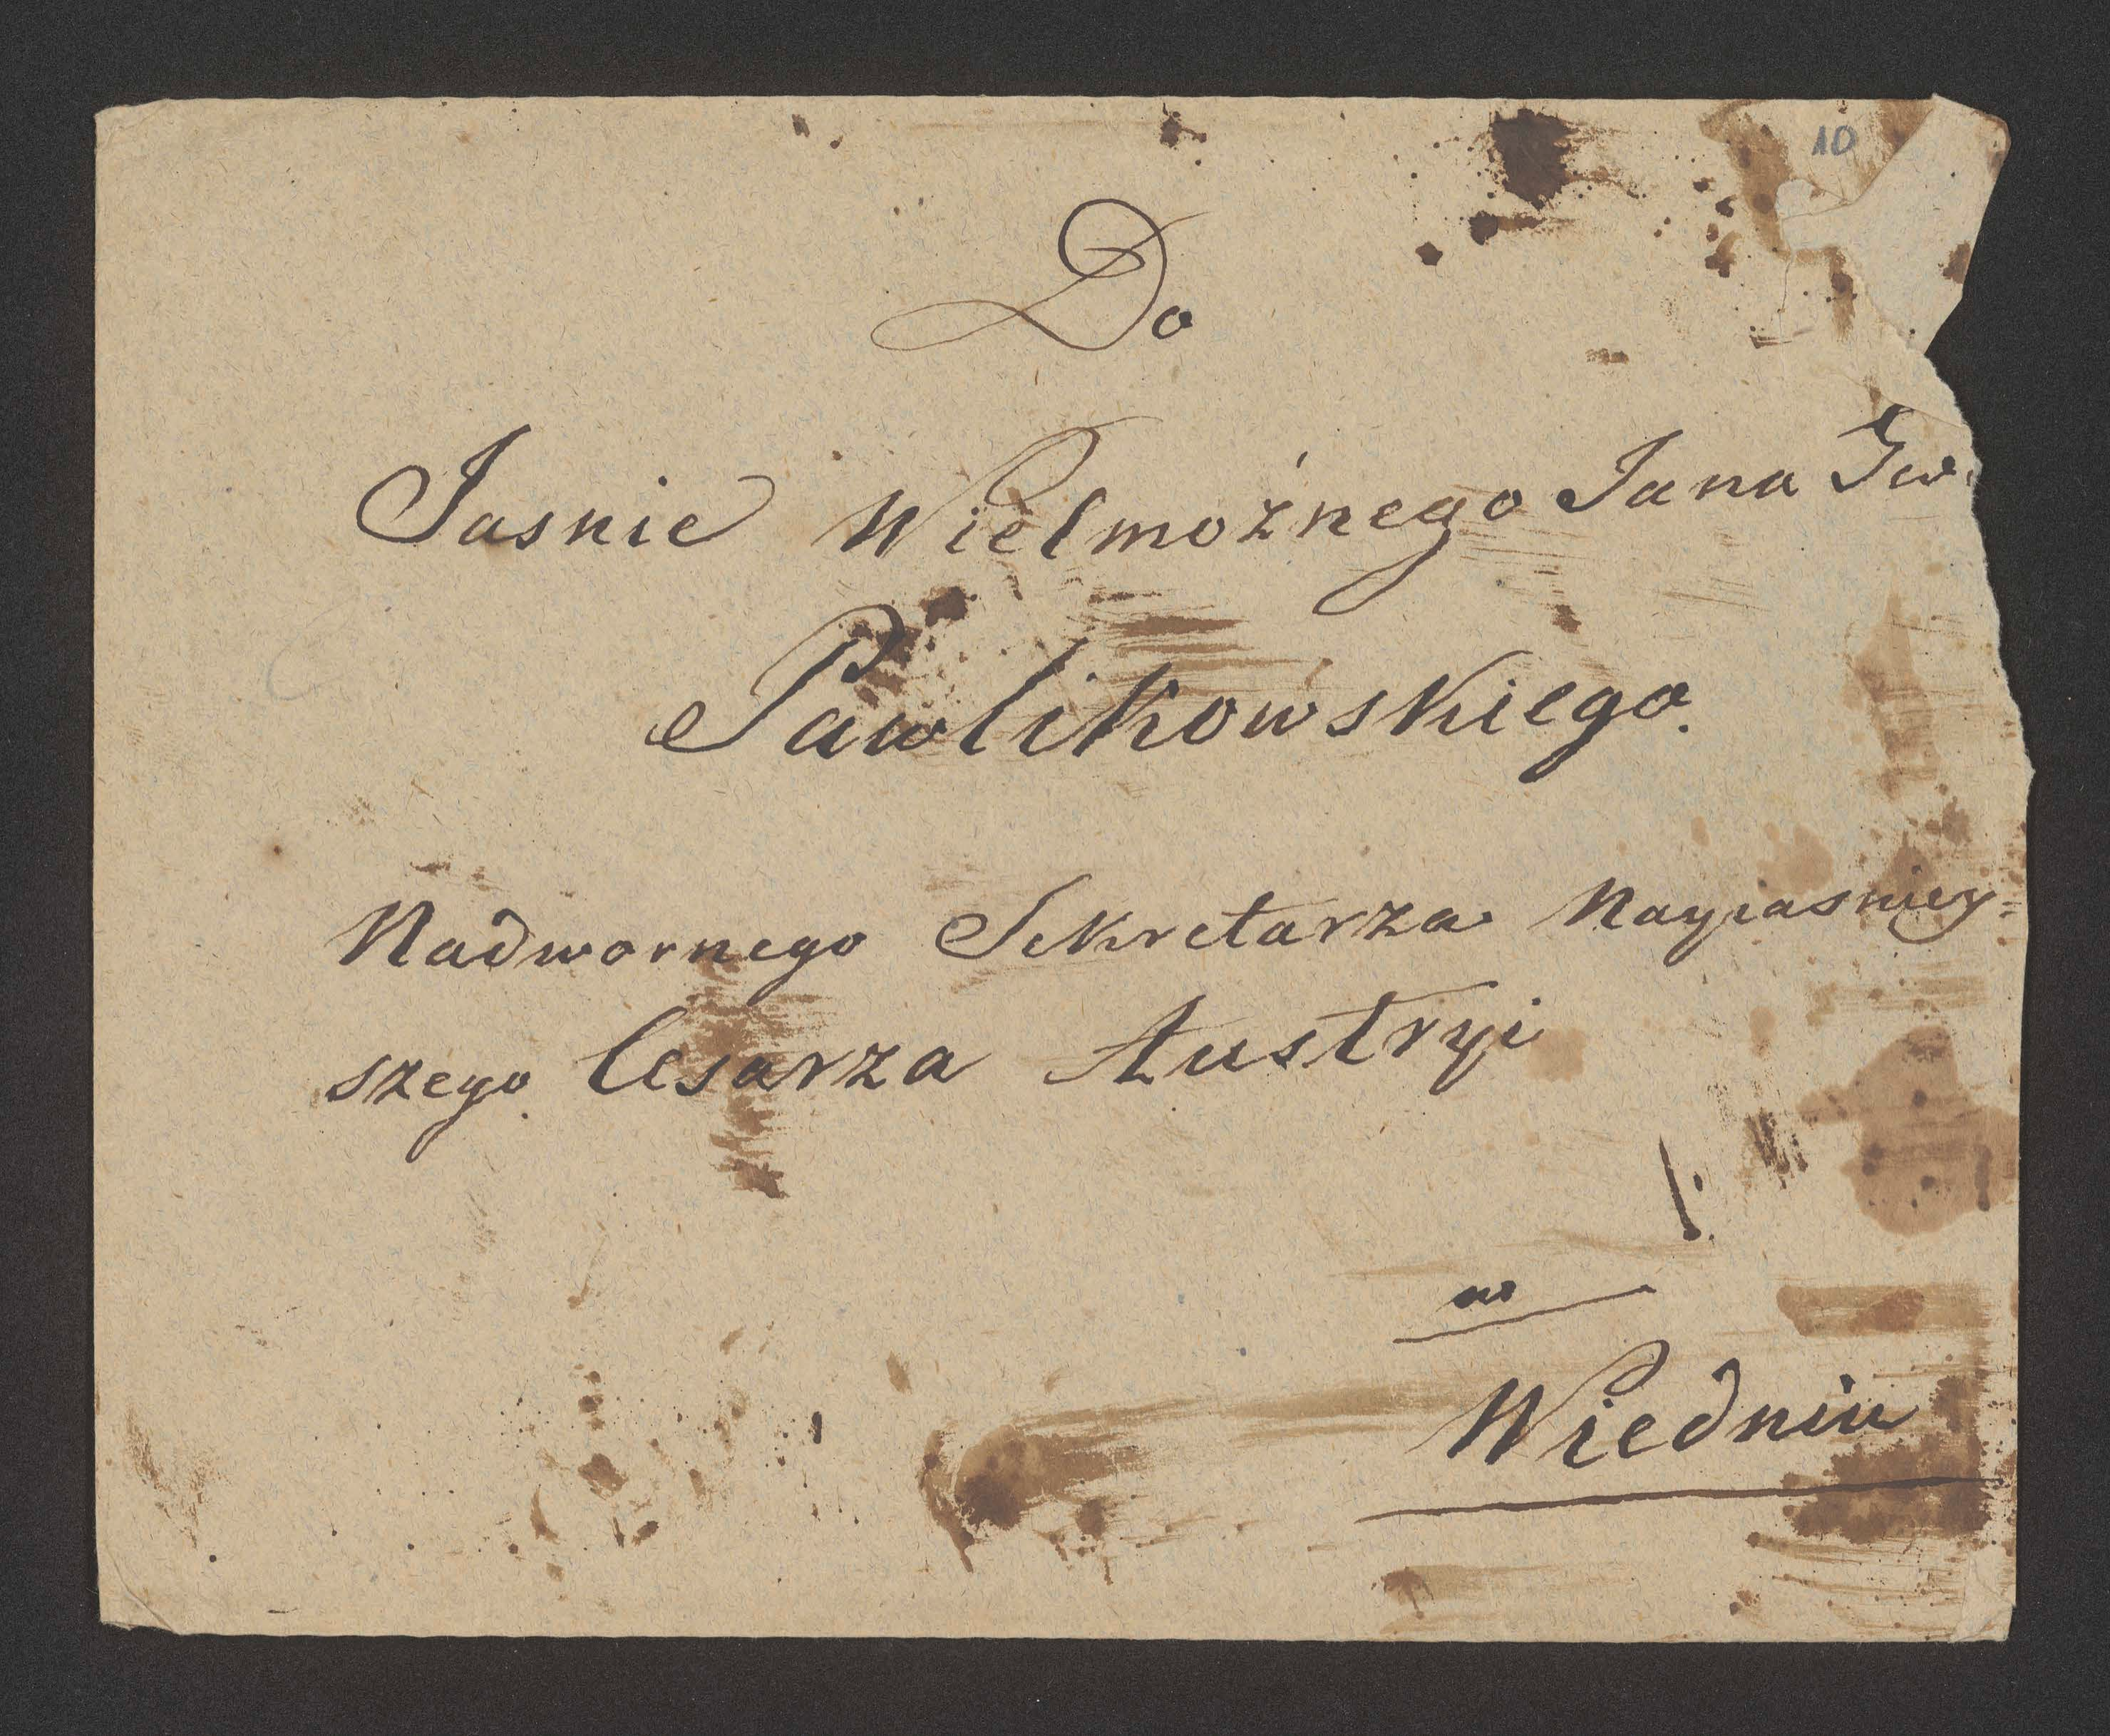 10
Do
Jasnie Wielmożnego Jana Gw
Pawlikowskiego.
Nadwornego Sekretarza Nayiasniey=
szego Cesarza Austryi
w
Wiedniu